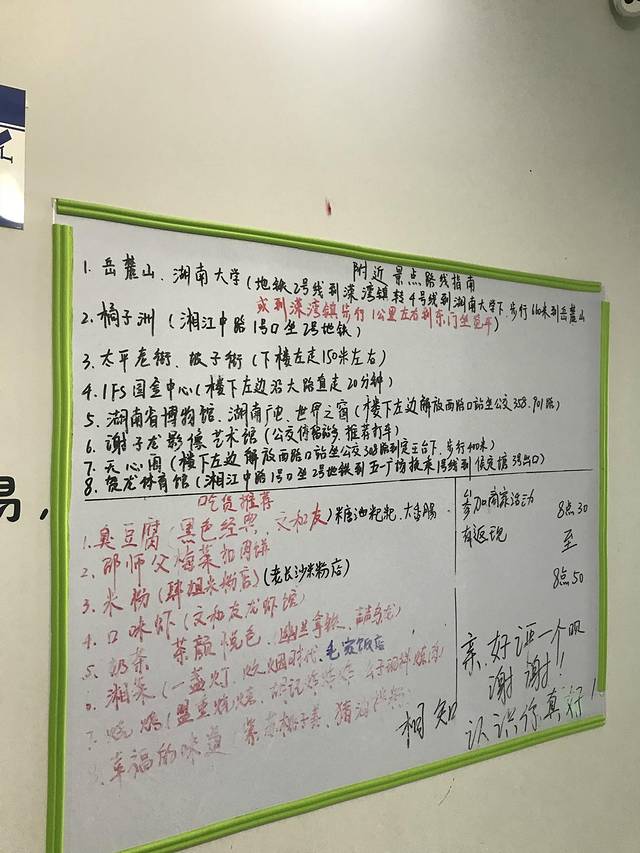 附近景点路线指南
1. 岳麓山、湖南大学(地铁2号线到溁湾镇转4号线到湖南大学下、步行160米到岳麓山
或到溁湾镇步行1公里左右到东门坐览车)
2. 橘子洲(湘江中路1号口坐2号地铁)
3. 太平老街、坡子街(下楼左走150米左右)
4. IFS国金中心(楼下左边沿大路直走20分钟)
5. 湖南省博物馆、湖南广电、世界之窗(楼下左边解放西路口站坐公交358.901路)
6. 谢子龙影像艺术馆(公交停站多,推荐打车)
7. 天心阁(楼下左边解放西路口站坐公交 到定王台下、步行400米)
8. 贺龙体育馆(湘江中路1号口坐2号地铁到五一广场换乘1号线到侯家塘3号出口)
吃货推荐
1. 臭豆腐(黑色经典、文和友)糖油粑粑、大香肠
2. 邵师父梅菜扣肉饼
3. 米粉(肆姐米粉店)(老长沙米粉店)
4. 口味虾(文和友龙虾馆)
5. 奶茶 茶颜悦色、幽兰拿铁、
6. 湘菜(一盏灯、炊烟时代、毛家饭店
7. 烧烤(盟重烧烤、
8. 幸福的味道(紫苏桃子姜、猪油
参加商家活动
有返现
8点30
至
8点50
亲、好评一个呗
谢谢!!
相知
认识你真好!